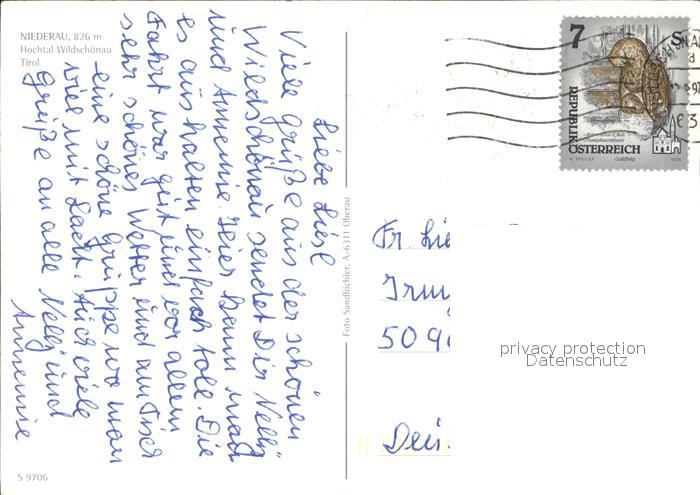 NIEDERAU, 826 m
Hochtal Wildschönau
Tirol
Liebe Liesl
Viele Grüße aus der schönen
Wildschönau sendet Dir Nelly
und Annemie. Hier kann mad
es aushalten einfach toll. Die
Fahrt war gut und vor allem
sehr schönes Wetter und am Tisch
eine schöne Gruppe wo man
viel mit lacht. Auch viele
Grüße an alle Nelly und
Annemie
S 9706
Foto Sandbichler, A-6311 Oberau
7 S
REPUBLIK
ÖSTERREICH
Fr. Lie
Irm
509
Dei
privacy protection
Datenschutz